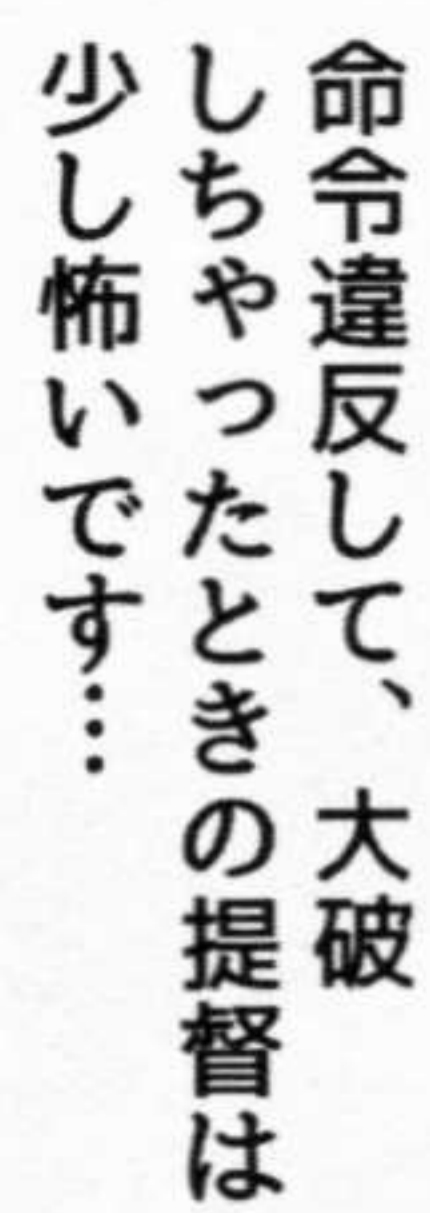 命令違反して、大破
しちゃったときの提督は
少し怖いです…